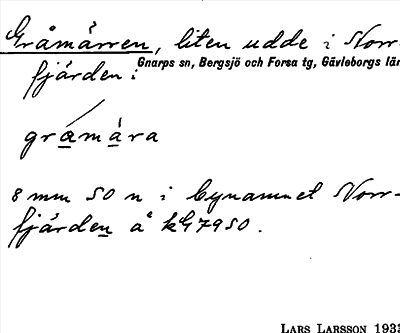 Gråmårren, liten udde i Norr-
fjärden:
Gnarps sn, Bergsjö och Forsa tg, Gävleborgs län
gråmåra
8 mm 50 n i bynamnet Norr-
fjärden å kG7950.
LARS LARSSON 1933